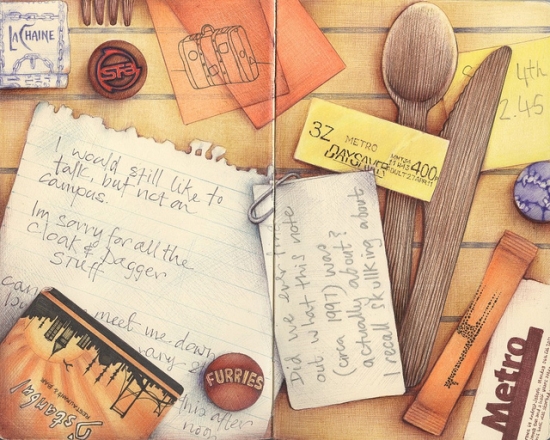 LA CHAINE
SFB
4th
2.45
3Z METRO
DAYSAVER
400
I would still like to
talk, but not on
campus.
Im sorry for all the
cloak & dagger
stuff
meet me down
this after
noon
Istanbul
RESTAURANT & BAR
FURRIES
Did we ever find
out what this note
(circa 1997) was
actually about?
I recall skulking about
Metro